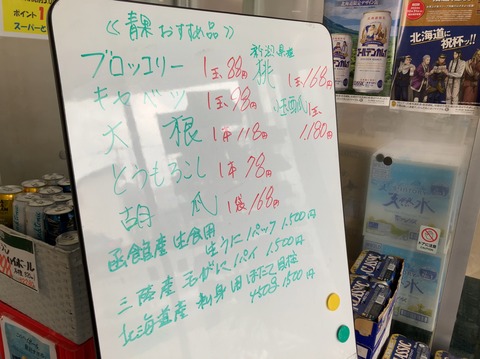 ≪青果おすすめ品≫
ブロッコリー 1玉88円
キャベツ 1玉98円
大根 1本118円
とうもろこし 1本78円
胡瓜 1袋168円
新潟県産
桃 1玉168円
小玉西瓜 1玉
1,180円
函館産 生食用 生うに 1パック 1,500円
三陸産 毛がに 1パイ 1,500円
北海道産 刺身用 ほたて貝柱
450g 1500円
ポイント1
スーパーと
北海道に
祝杯ッ!!
天然水
CLASSIC